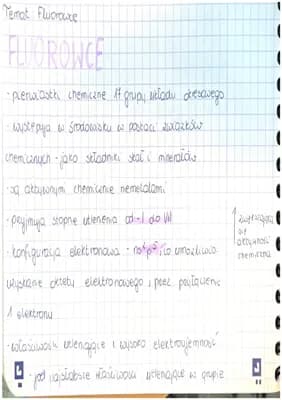 Temat Fluorowce
FLUOROWCE
- pierwiastki chemiczne 17 grupy układu okresowego
- występują w środowisku w postaci związków
chemicznych - jako składniki skał i minerałów
- są aktywnymi chemicznie niemetalami
- przyjmują stopnie utlenienia od -I do VII
- konfiguracja elektronowa - ns²p⁵, co umożliwia
uzyskanie oktetu elektronowego przez przyłączenie
1 elektronu
się
aktywność
chemiczna
- właściwości utleniające i wysoka elektroujemność
- jod najsłabsze właściwości utleniające w grupie